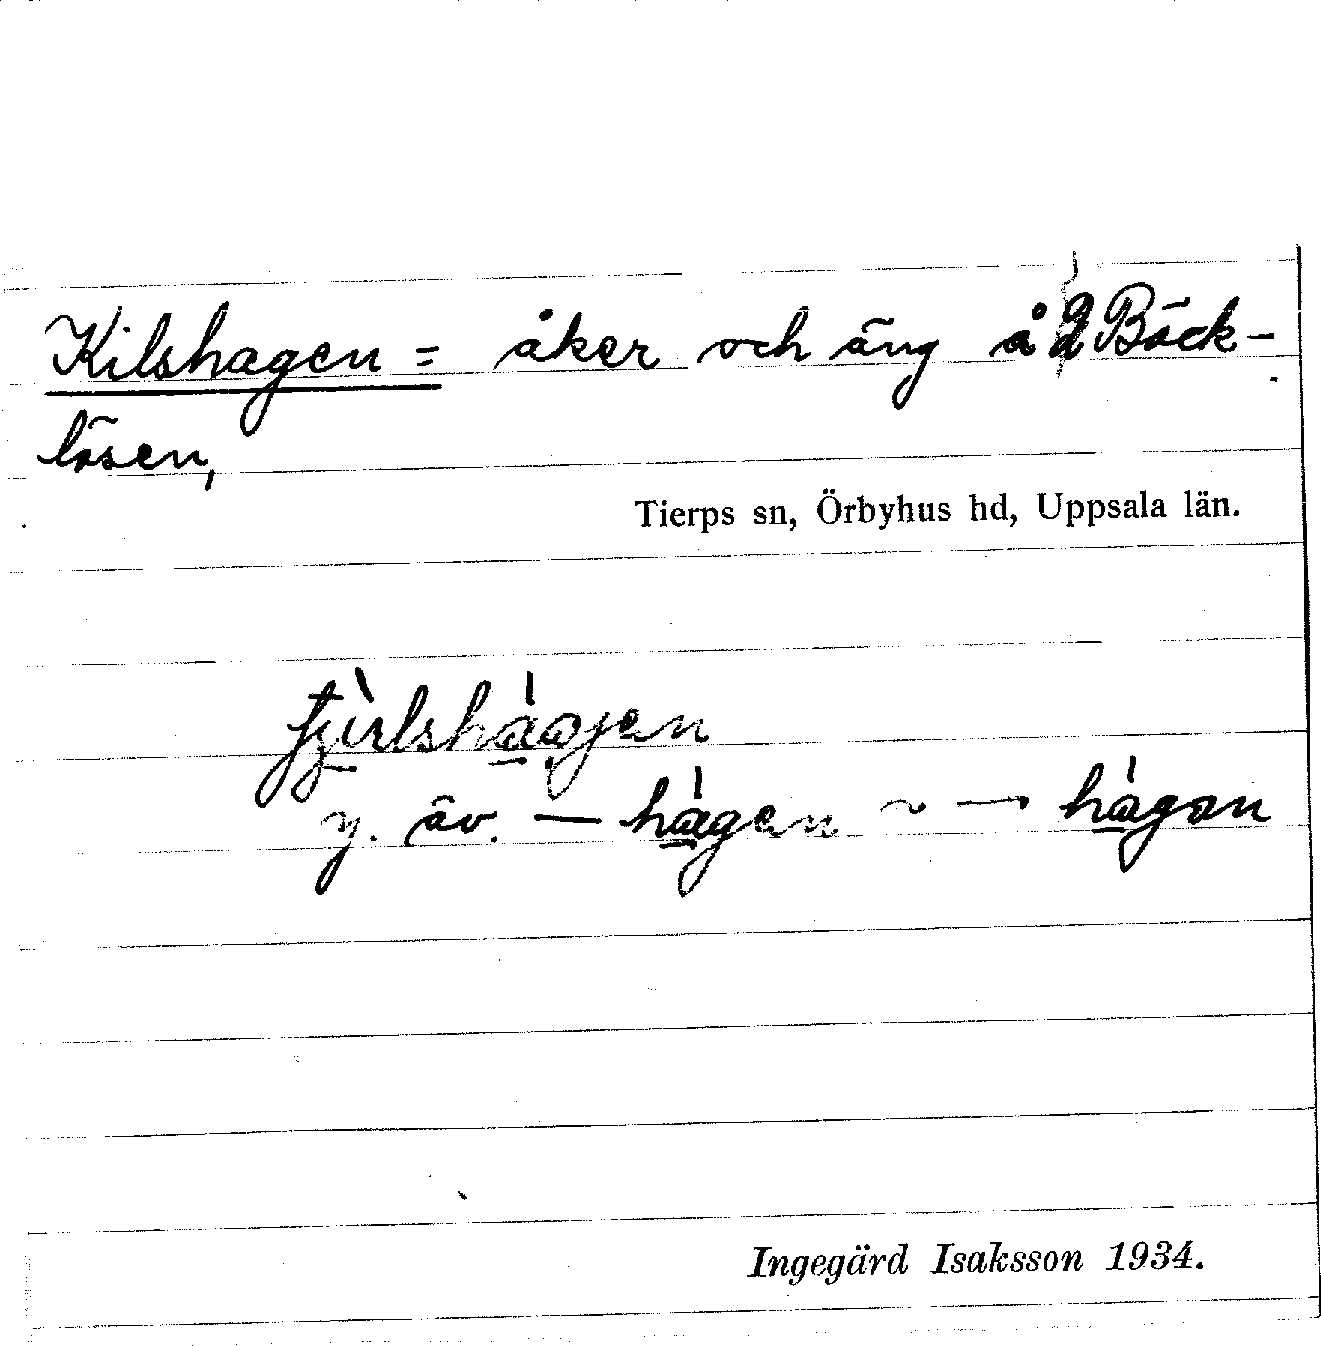 Kilshagen = åker och äng å 2 Böck-
lösen,
Tierps sn, Örbyhus hd, Uppsala län.
y. äv. — hágen ~ — hágan
Ingegärd Isaksson 1934.